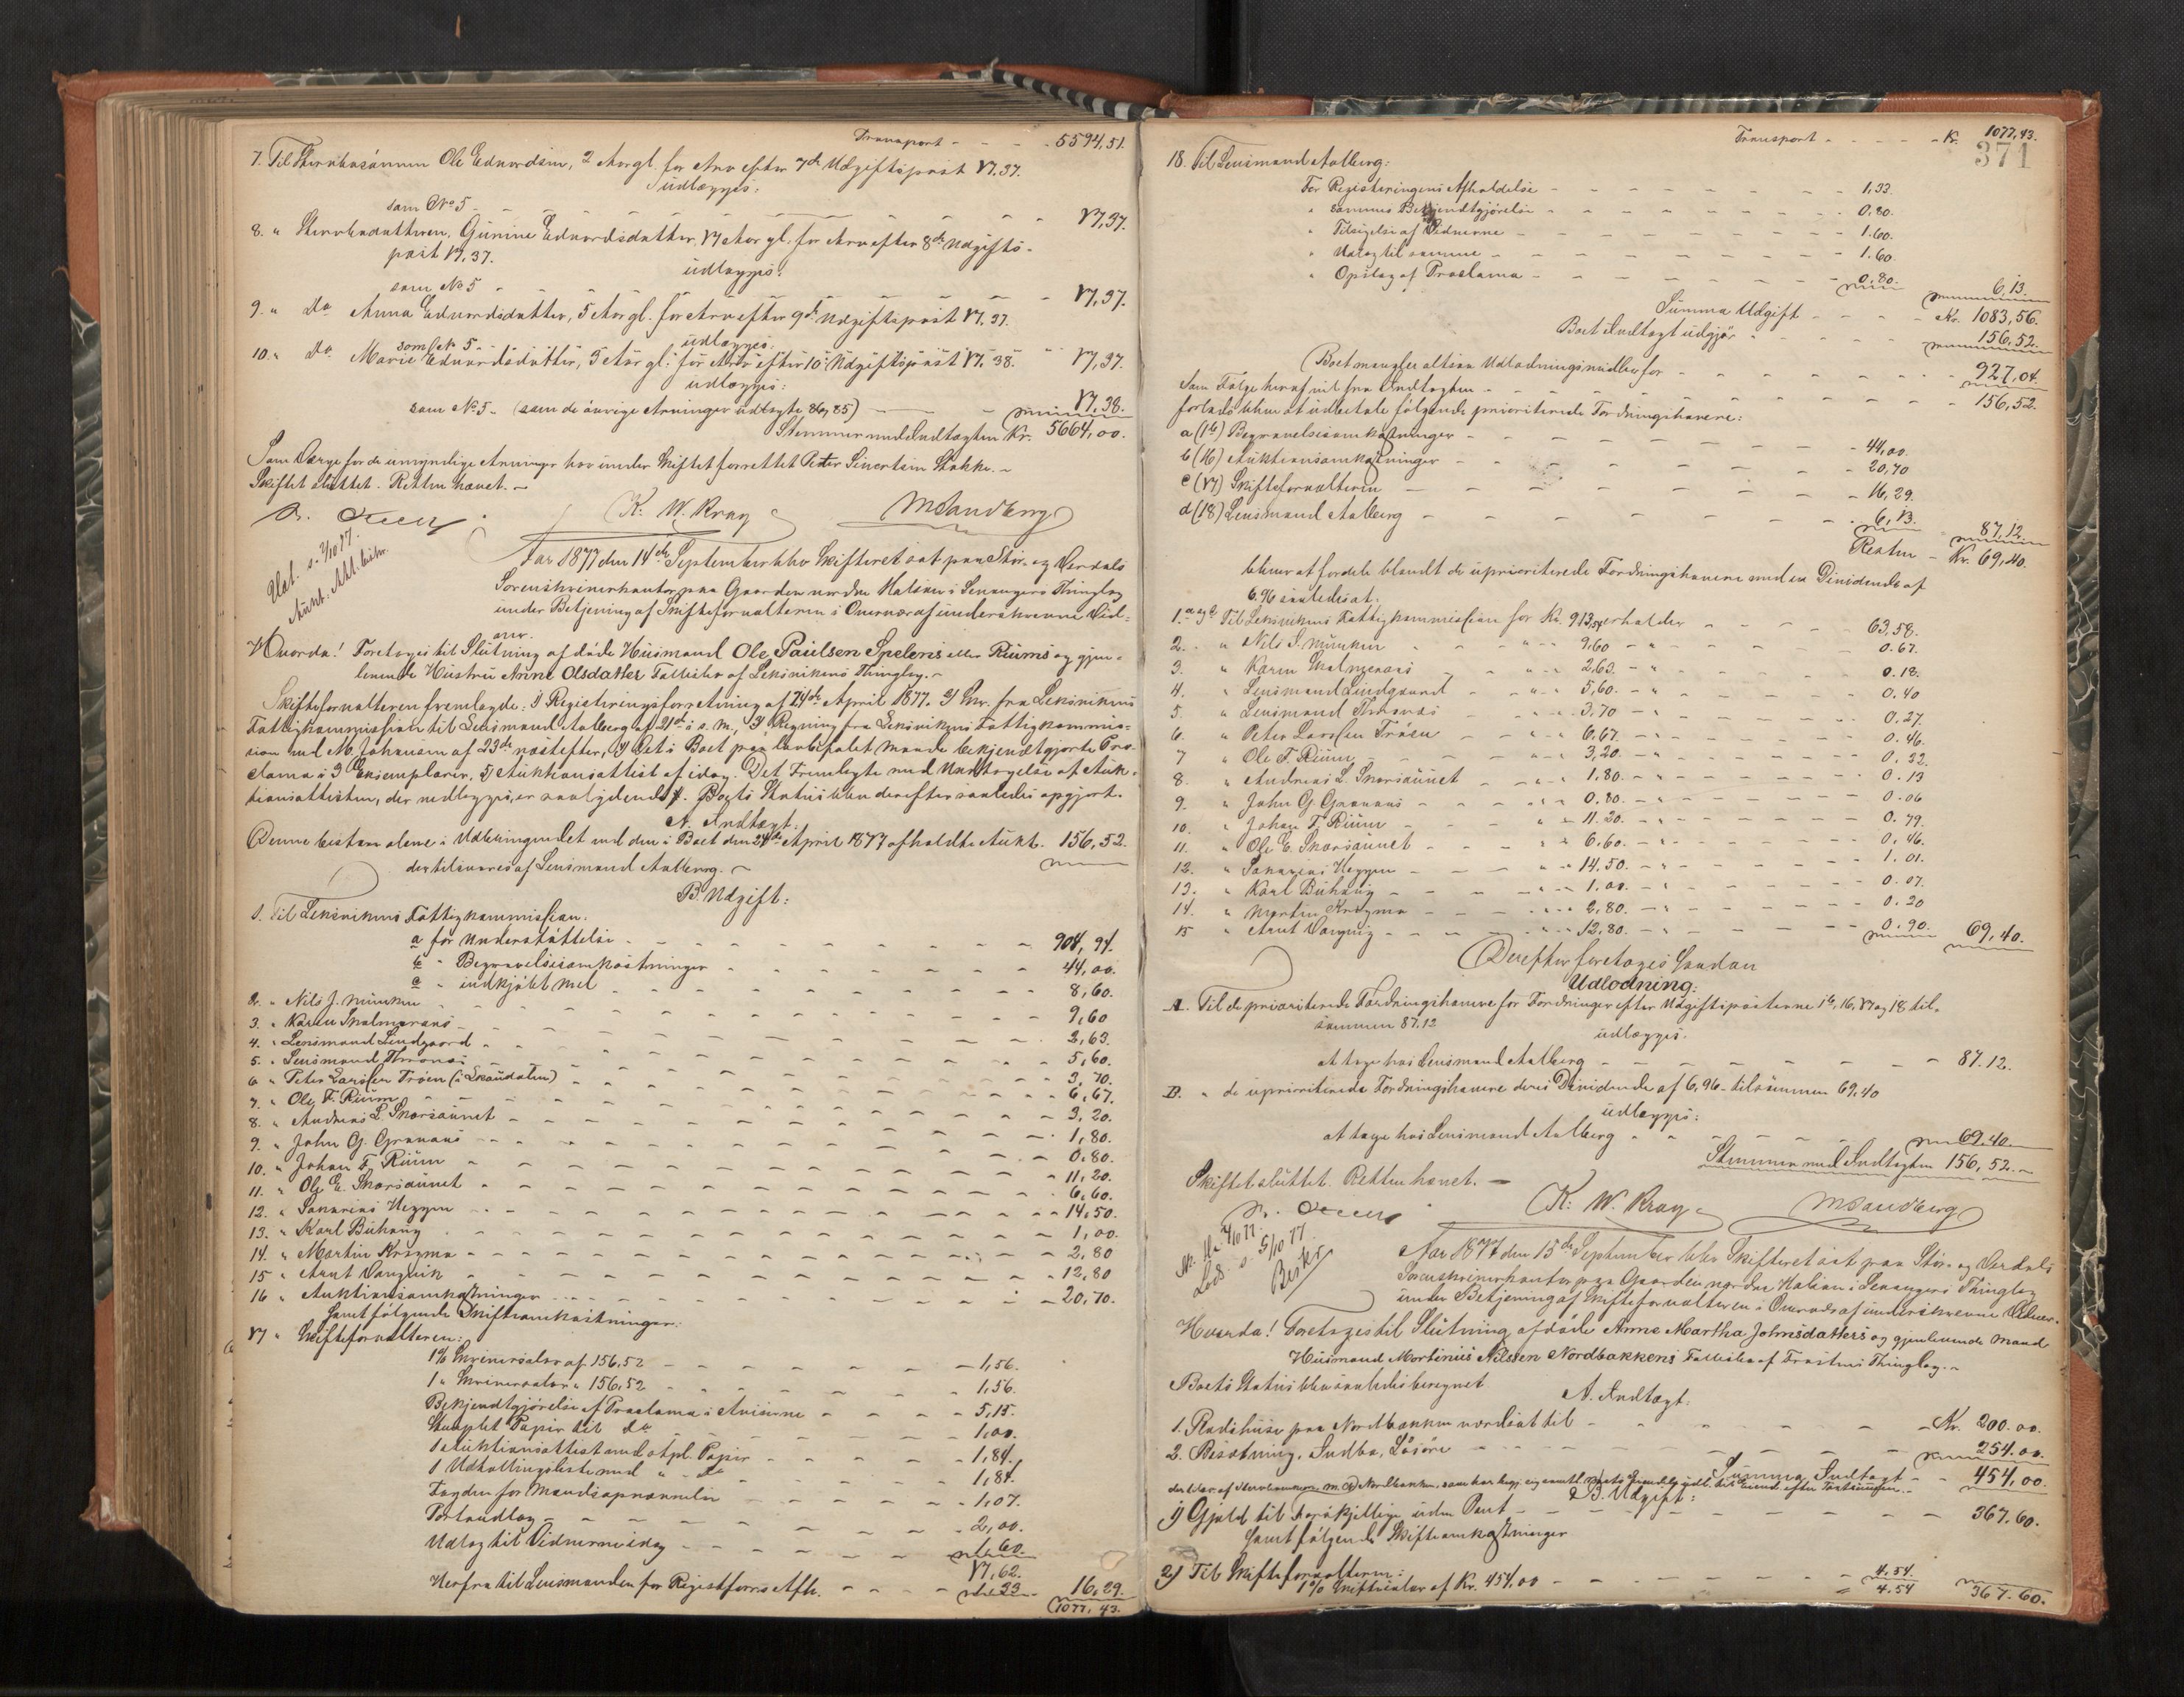 Transport - - - 5594,51.
7. Til Stervbosønnen Ole Edvardsen, 2 Aar gl. for Arv efter 7de Udgiftspost 17.37.
udlægges:
som No 5 - - - - - 17,37.
8. " Stervbodatteren, Gurine Edvardsdatter, 17 Aar gl. for Arv efter 8de Udgifts-
post 17.37.
udlægges:
som No 5 - - - - - 17,37.
9. " do Anna Edvardsdatter, 5 Aar gl. for Arv efter 9de Udgiftspost 17.37.
udlægges:
som No 5 - - - 17,37.
10. " do Marie Edvardsdatter, 3 Aar gl. for Arv efter 10de Udgiftspost 17.38.
udlægges:
som No 5 - (som de øvrige Arvinger udlagte 84 85) - - 17,38.
Stemmer med Indtægten Kr. 5664,00.
Som Værge for de umyndige Arvinger har under Skiftet forrettet Peter Sivertsen Stokke. -
Skiftet sluttet. Retten hævet. -
K. W. Kray MSandberg
Udl. s. 2/10 77.
Aar 1877 den 14de September blev Skifteret sat paa Stør- og Værdals
Sorenskriverkontor paa Gaarden nordre Halsan i Levangers Thinglag
under Betjening af Skifteforvalteren i Overvær af underskrevne Vid-
ner.
Hvorda! Foretoges til Slutning afdøde Husmand Ole Paulsen Spelens eller Rüums og gjen-
levende Hustru Anne Olsdatter Fallesbo af Leksvikens Thinglag. -
Skifteforvalteren fremlagde: 1) Registreringsforretning af 24de April 1877. 2) Skr. fra Leksvikens
Fattigkommission til Lensmand Aalberg af 21de s. M., 3) Regning fra Leksvikens Fattigkommis-
sion ved M. Johansen af 23de næstefter, 4) det i Boet paa lovbefalet Maade bekjendtgjorte Pro-
clama i 3 Exemplarer, 5) Auktionsattest af idag. Det Fremlagte med Undtagelse af Auk-
tionsattesten, der nedlægges, er saalydende #. Boets Status blev derefter saaledes opgjort.
A. Indtægt:
Denne bestaar alene i Udbringendet ved den i Boet den 24de April 1877 afholdte Aukt. 156,52.
der tilsvares af Lensmand Aalberg. -
B. Udgift:
1. Til Leksvikens Fattigkommission.
a for Understøttelse - - - 904,94.
b " Begravelsesomkostninger - - - 44,00.
c " indkjøbt Mel - - - 8,60.
2. " Nils J. Munken - - - 9,60
3. " Karen Skalmeraas - - - 2,63.
4. " Lensmand Lindgaard - - - 5,60.
5. " Lensmand Thronæs - - - 3,70.
6 " Peter Larssen Trøen (i Skaudalen) - - - 6,67.
7. " Ole F. Rüum - - - 3,20.
8. " Andreas L. Snorsaunet - - - 1,80.
9. " John G. Granaas - - - 0.80.
10. " Johan F. Rüum - - - 11,20.
11. " Ole E. Skorsaunet - - - 6,60.
12. " Sakarias Heggen - - - 14,50.
13. " Karl Buhaug - - - 1,00.
14. " Martin Krogmo - - - 2,80
15 " Arnt Vangvik - - - 12,80
16 " Auktionsomkostninger - - - 20,70.
Samt følgende Skifteomkostninger:
17 " Skifteforvalteren:
1% Skiversalær af 156,52 - - - 1,56.
1 " Skriversalær " 156,52 - - - 1,56.
Bekjendtgjørelse af Proclama i Aviserne - - - 5,15.
Stemplet Papir til do - - - 1,00.
1 Auktionsattest med stpl. Papir - - - 1,84.
1 Udlodningsliste med " do - - - 1,84.
Fogden for Mandsopnævnelse - - - 1,07.
Portoudlæg - - - 2,00.
Udlæg til Vidnerne idag - - - 1,60.
17,62.
Herfra til Lensmanden for Registforr. Afh. - - - 1.33 - 16,29.
1077,43.
Transport - - - Kr. 1077,43.
371
18. Til Lensmand Aalberg:
For Registeringens Afholdelse - - - 1,33.
" sammes Bekjendtgjørelse - - - 0,80.
" Tilsigelse af Vidnerne - - - 1.60.
" Udlæg til samme - - - 1.60.
" Opslag af Proclama - - - 0,80. 6,13.
Summa Udgift - - - Kr. 1083,56.
Boets Indtægt udgjør - - - 156,52.
Boet mangler altsaa Udlodningsmidler for - - - 927,04.
Som Følge heraf vil fra Indtægten - - - 156,52.
forlods blive at udbetale følgende prioriterede Fordringshavere:
a (1b) Begravelsesomkostninger - - - 44,00.
b (16) Auktionsomkostninger - - - 20,70
c (17) Skifteforvalteren - - - 16,29.
d (18) Lensmand Aalberg - - - 6,13. 87,12.
Resten - Kr. 69,40.
bliver at fordele blandt de uprioriterede Fordringshavere med en Dividende af
6.96 saaledes at:
1. a og c Til Leksvikens Fattigkommission for Kr. 913,54 erholder - - - 63,58.
2. " Nils J. Munken - " - 9,60 - " - 0.67.
3. " Karen Skalmeraas - " - 2,63. - " - 0.18.
4. " Lensmand Lindgaard - " - 5,60. - " - 0,40
5. " Lensmand Thronæs - " - 3,70 - " - 0,27.
6. " Peter Larssen Trøen - " - 6,67. - " - 0.46.
7 " Ole F. Rüum - " - 3,20. - " - 0,22.
8 " Andreas L. Snorsaunet - " - 1,80. - " - 0.13
9. " John G. Granaas - " - 0,80. - " - 0.06
10. " Johan F. Rüum - " - 11.20. - " - 0.79.
11. " Ole E. Skorsaunet - " - 6,60. - " - 0,46.
12. " Sakarias Heggen - " - 14,50. - " - 1.01.
13. " Karl Buhaug - " - 1,00. - " - 0.07.
14. " Martin Krogmo - " - 2,80. - " - 0.20
15 " Arnt Vangvig - " - 12,80. - " - 0.90. 69,40.
Derefter foretoges saadan
Udlodning:
A. Til de prioriterede Fordringshavere for Fordringer efter Udgiftsposterne 1b, 16, 17 og 18 til-
sammen 87.12
udlægges.
at tage hos Lensmand Aalberg - - - 87.12.
B. " de uprioriterede Fordringshavere deres Dividende af 6,96 - tilsammen 69,40
udlægges:
at tage hos Lensmand Aalberg - - - 69,40
Stemmer med Indtægten 156,52. -
Skiftet sluttet. Retten hævet. -
K. W. Kray MSandberg
Aar 1877 den 15de September blev Skifteret sat paa Stør- og Værdals
Sorenskriverkontor paa Gaarden nordre Halsan i Levangers Thinglag
under Betjening af Skifteforvalteren i Overvær af underskrevne Vidner.
Hvorda! Foretoges til Slutning afdøde Anne Martha Johnsdatters og gjenlevende Mand
Husmand Mortinus Nilssen Nordbakkens Fallesbo af Frostens Thinglag. -
Boets Status blev saaledes beregnet
A. Indtægt.
1. Rudshuse paa Nordbakken værdsat til - - - Kr. 200.00.
2. Besætning, Indbo, Løsøre - - - 254.00.
Summa Indtægt - - 454,00.
B. Udgift:
1) Gjæld til Forskjellige uden Pant - - - 367.60.
Samt følgende Skifteomkostninger
2) Til Skifteforvalteren:
1% Skiftesalær af Kr. 454,00 - - - 4.54.
4.54 367.60.